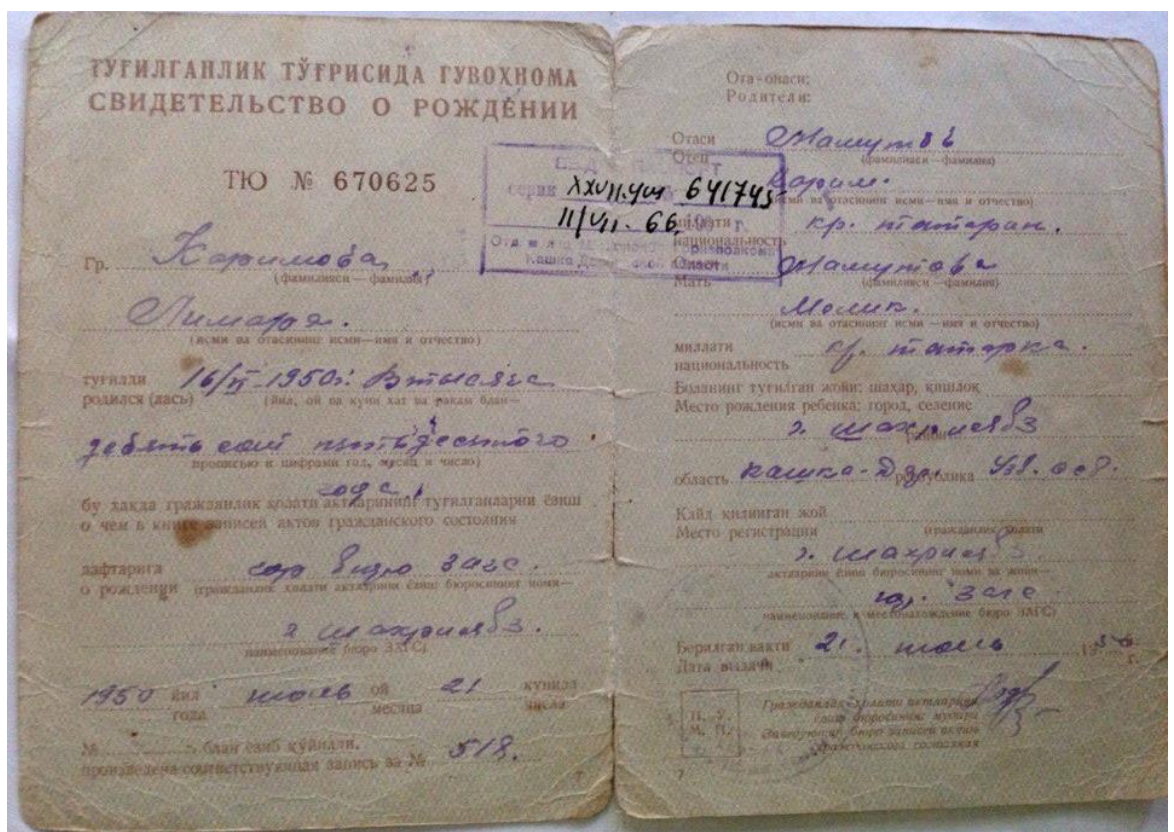 ТУҒИЛГАНЛИК ТЎҒРИСИДА ГУВОҲНОМА
СВИДЕТЕЛЬСТВО О РОЖДЕНИИ
ТЮ № 670625
Гр. Каримова
(фамилияси — фамилия)
(исми ва отасининг исми — имя и отчество)
туғилди 16/ 1950г.
родился (лась) (йил, ой ва куни хат ва рақам блан —
девять сот пятьдесятого
прописью и цифрами год, месяц и число)
года
бу ҳақда гражданлик ҳолати актларининг туғилганларни ёзиш
о чем в книге записей актов гражданского состояния
дафтарига гор бюро загс.
о рождении (гражданлик ҳолати актларини ёзиш бюросининг номи —
г. шахрисябз.
наименование бюро ЗАГС)
1950 йил июль ой 21 кунида
года месяца числа
№ блан ёзиб қўйилди.
произведена соответствующая запись за № 518.
7
серии XXVII-УЩ 641745
11/VII-66 г.
Ота-онаси:
Родители:
Отаси
Отец (фамилияси — фамилия)
Карим.
(исми ва отасининг исми — имя и отчество)
миллати кр. татарин.
национальность
Онаси
Мать (фамилияси — фамилия)
(исми ва отасининг исми — имя и отчество)
миллати кр. татарка.
национальность
Боланинг туғилган жойи: шаҳар, қишлоқ
Место рождения ребенка: город, селение
г. шахрисябз
район
область Кашка-Дар. республика Узб. сср.
Қайд қилинган жой
Место регистрации (гражданлик ҳолати
г. шахрисябз.
актларини ёзиш бюросининг номи ва жойи —
гор. загс
наименование и местонахождение бюро ЗАГС)
Берилган вақти 21. июль 1950
Дата выдачи г.
М. У. Гражданлик ҳолати актларини
М. П. ёзиш бюросининг мудири
Заведующий бюро записей актов
гражданского состояния
7